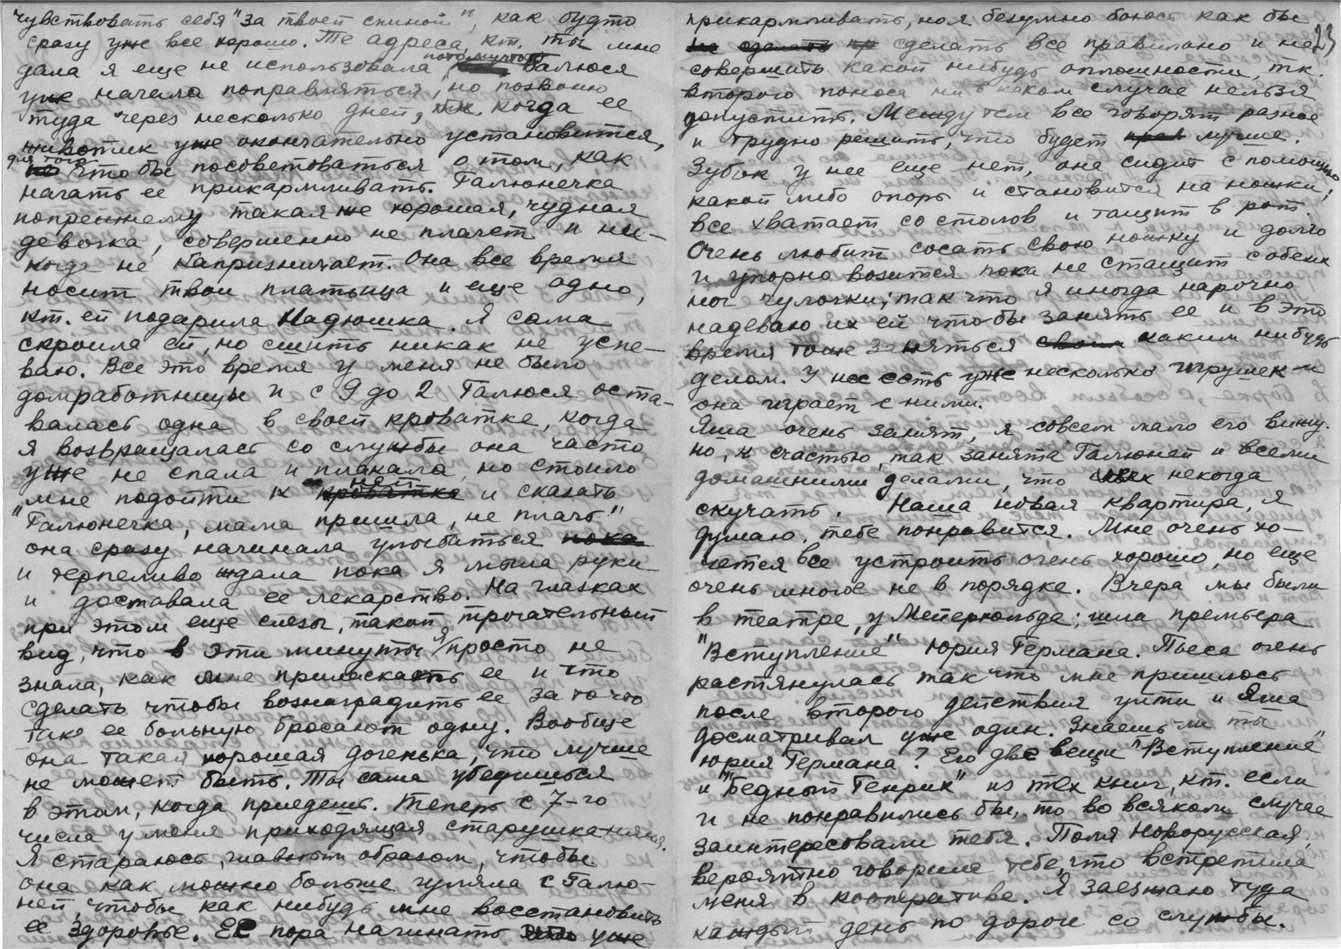 чувствовать себя "за твоей спиной", как будто
сразу уже все хорошо. Те адреса, кт. ты мне
дала я еще не использовала потомучто Галюся
уже начала поправляться, но позвоню
туда через несколько дней, когда ее
животик уже окончательно установится,
для того чтобы посоветоваться о том, как
начать ее прикармливать. Галюнечка
попрежнему такая же хорошая, чудная
девочка, совершенно не плачет и ни-
когда не капризничает. Она все время
носит твои платьица и еще одно,
кт. ей подарила Надюшка. Я сама
скроила ей, но сшить никак не успе-
ваю. Все это время у меня не было
домработницы и с 9 до 2 Галюся оста-
валась одна в своей кроватке, когда
я возвращалась со службы она часто
уже не спала и плакала, но стоило
мне подойти к ней и сказать
"Галюнечка, мама пришла, не плачь"
она сразу начинала улыбаться
и терпеливо ждала пока я мыла руки
и доставала ее лекарство. На глазках
при этом еще слезы, такой трогательный
вид, что в эти минуты я просто не
знала, как мне приласкать ее и что
сделать чтобы вознаградить ее за то что
так ее больную бросают одну. Вообще
она такая хорошая доченька, что лучше
не может быть. Ты сама убедишься
в этом, когда приедешь. Теперь с 7-го
числа у меня приходящая старушка няня.
Я стараюсь, главным образом, чтобы
она как можно больше гуляла с Галю-
ней, чтобы как нибудь мне восстановить
ее здоровье. Ее пора начинать уже
23
прикармливать, но я безумно боюсь как бы
сделать все правильно и не
совершить какой нибудь оплошности, т.к.
второго поноса ни в каком случае нельзя
допустить. Между тем все говорят разное
и трудно решить, что будет лучше.
Зубок у нее еще нет, она сидит с помощью
какой либо опоры и становится на ножки,
все хватает со столов и тащит в рот.
Очень любит сосать свою ножку и долго
и упорно возится пока не стащит с обеих
ног чулочки; так что я иногда нарочно
надеваю их ей чтобы занять ее и в это
время тоже заняться каким нибудь
делом. У нее есть уже несколько игрушек и
она играет с ними.
Яша очень занят, я совсем мало его вижу.
Но, к счастью, так занята Галюней и всеми
домашними делами, что некогда
скучать. Наша новая квартира, я
думаю, тебе понравится. Мне очень хо-
чется все устроить очень хорошо, но еще
очень многое не в порядке. Вчера мы были
в театре, у Мейерхольда; шла премьера
"Вступление" Юрия Германа. Пьеса очень
растянулась так что мне пришлось
после второго действия уйти и Яша
досматривал уже один. Знаешь ли ты
Юрия Германа? Его две вещи "Вступление"
и "Бедный Генрих" из тех книг, кт. если
и не понравились бы, то во всяком случае
заинтересовали тебя. Поля Новорусская,
вероятно говорила тебе, что встретила
меня в кооперативе. Я заезжаю туда
каждый день по дороге со службы.